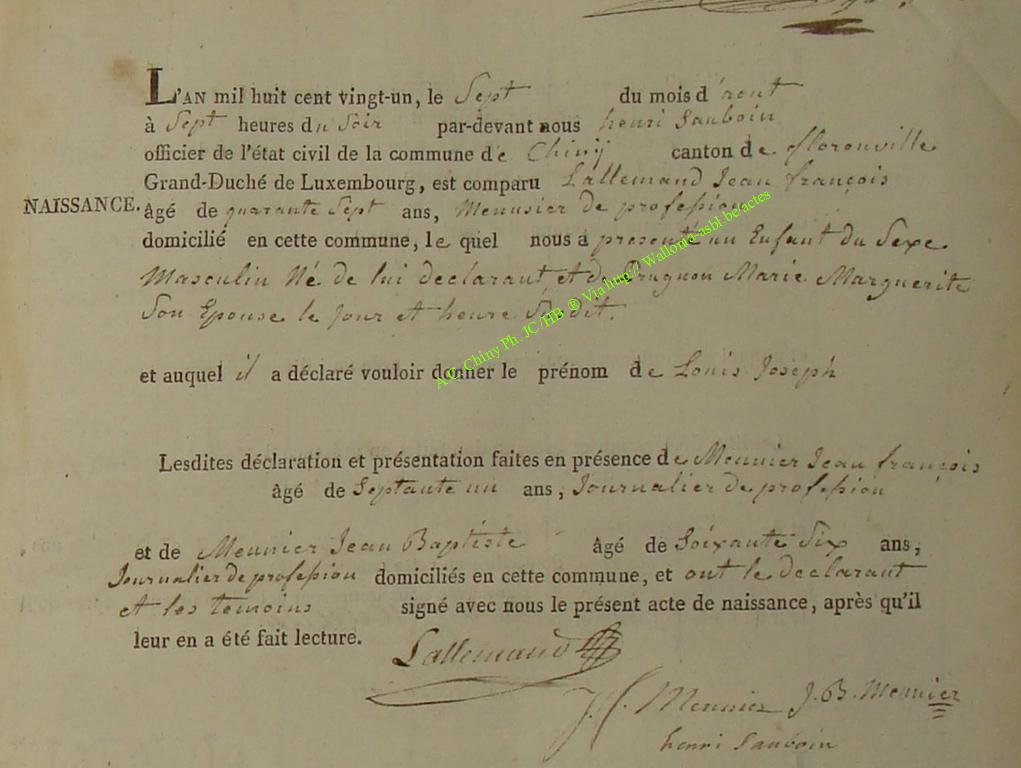 L'AN mil huit cent vingt-un, le Sept du mois d'aout
à Sept heures du Soir par-devant nous henri Sauboin
officier de l'état civil de la commune de Chiny canton de florenville
Grand-Duché de Luxembourg, est comparu Lallemand Jean françois
NAISSANCE. âgé de quarante Sept ans, Menusier de profession
domicilié en cette commune, le quel nous a presenté un Enfant du Sexe
Masculin Né de lui declarant et de Prugnon Marie Marguerite
Son Epouse le jour et heure Susdit.
et auquel il a déclaré vouloir donner le prénom de Louis Joseph
Lesdites déclaration et présentation faites en présence de Meunier Jean françois
âgé de Septante un ans, Journalier de profession
et de Meunier Jean Baptiste âgé de Soixante Six ans,
Journalier de profession domiciliés en cette commune, et ont le declarant
et les temoins signé avec nous le présent acte de naissance, après qu'il
leur en a été fait lecture.
Lallemand
J.f. Meunier J. B. Meunier
henri Sauboin